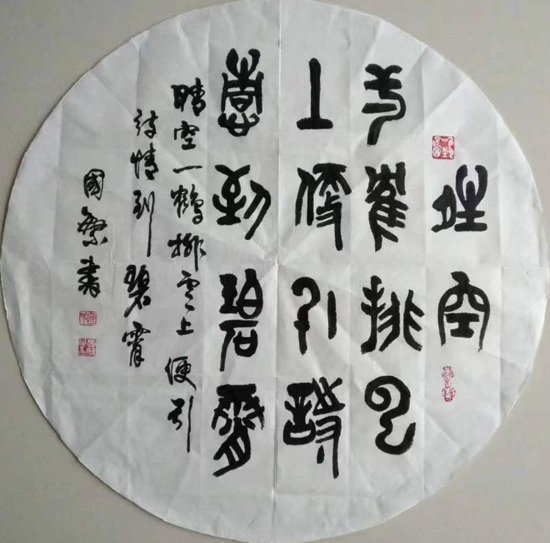 晴空
一鹤排云
上便引诗
情到碧霄
晴空一鹤排云上便引
诗情到碧霄
國繁書